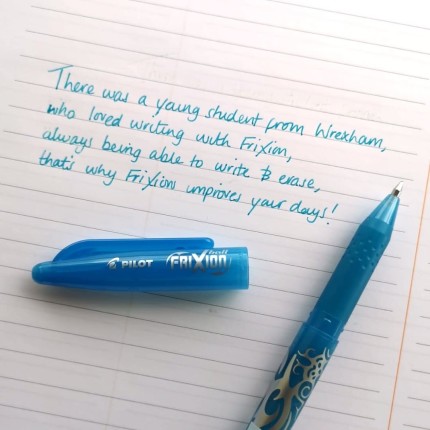 There was a young student from Wrexham,
who loved writing with FriXion,
always being able to write & erase,
that's why FriXion improves your days!
PILOT FRIXION ball